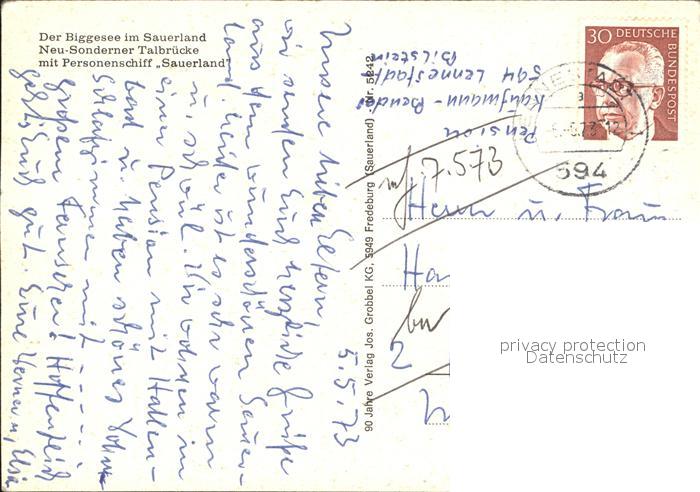 Der Biggesee im Sauerland
Neu-Sonderner Talbrücke
mit Personenschiff „Sauerland"
5.5.73
Unsere lieben Eltern,
wir senden Euch herzliche Grüße
aus dem wunderschönen Sauer-
land. Leider ist es sehr warm
u. schwül. Wir wohnen in
einer Pension mit Hallen-
bad u. haben schönes Wohn-
Schlafzimmer mit
großem Fernseher! Hoffentlich
geht's Euch gut. Eure Werner u. Elsa
90 Jahre Verlag Jos. Grobbel KG, 5949 Fredeburg (Sauerland) Nr. 5242
Pension
Kaufmann-
594 Lennestadt
Bilstein
30 DEUTSCHE
BUNDESPOST
594
7.573
Herrn u. Frau
2
privacy protection
Datenschutz